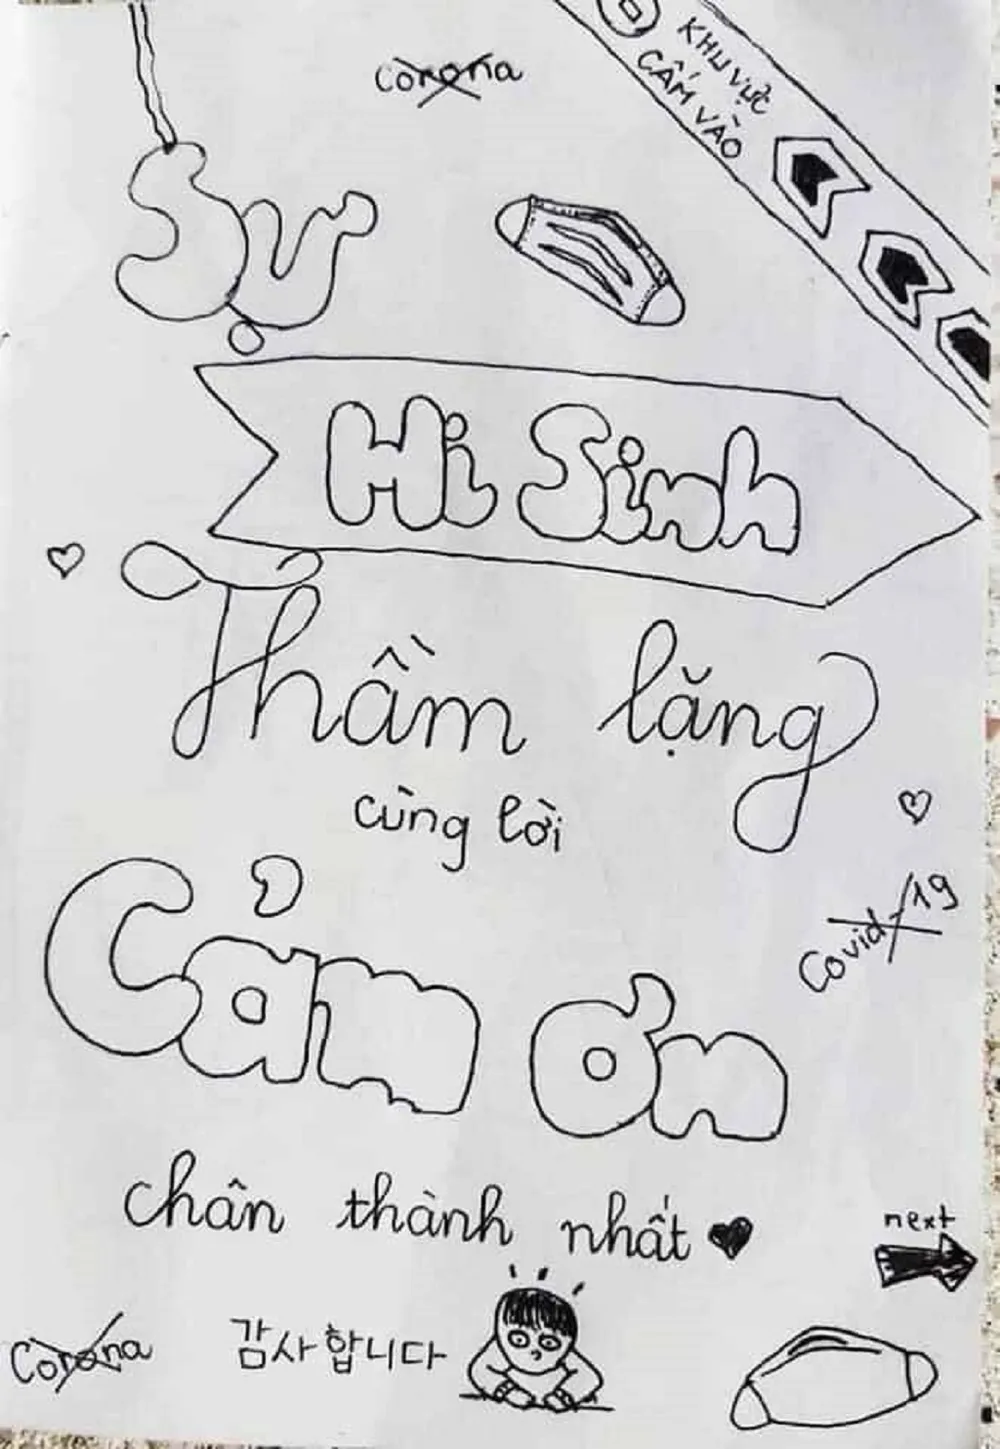 Corona
KHU VỰC
CẤM VÀO
Sự
Hi Sinh
Thầm lặng
cùng lời
Cảm ơn
Covid-19
chân thành nhất
next
Corona
감사합니다